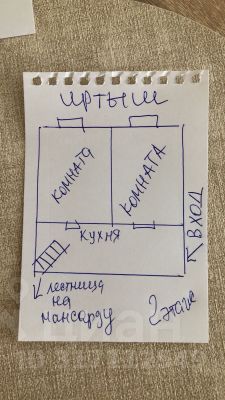 ИРТЫШ
КОМНАТА
КОМНАТА
ВХОД
КУХНЯ
лестница
на
мансарду
2 этаж